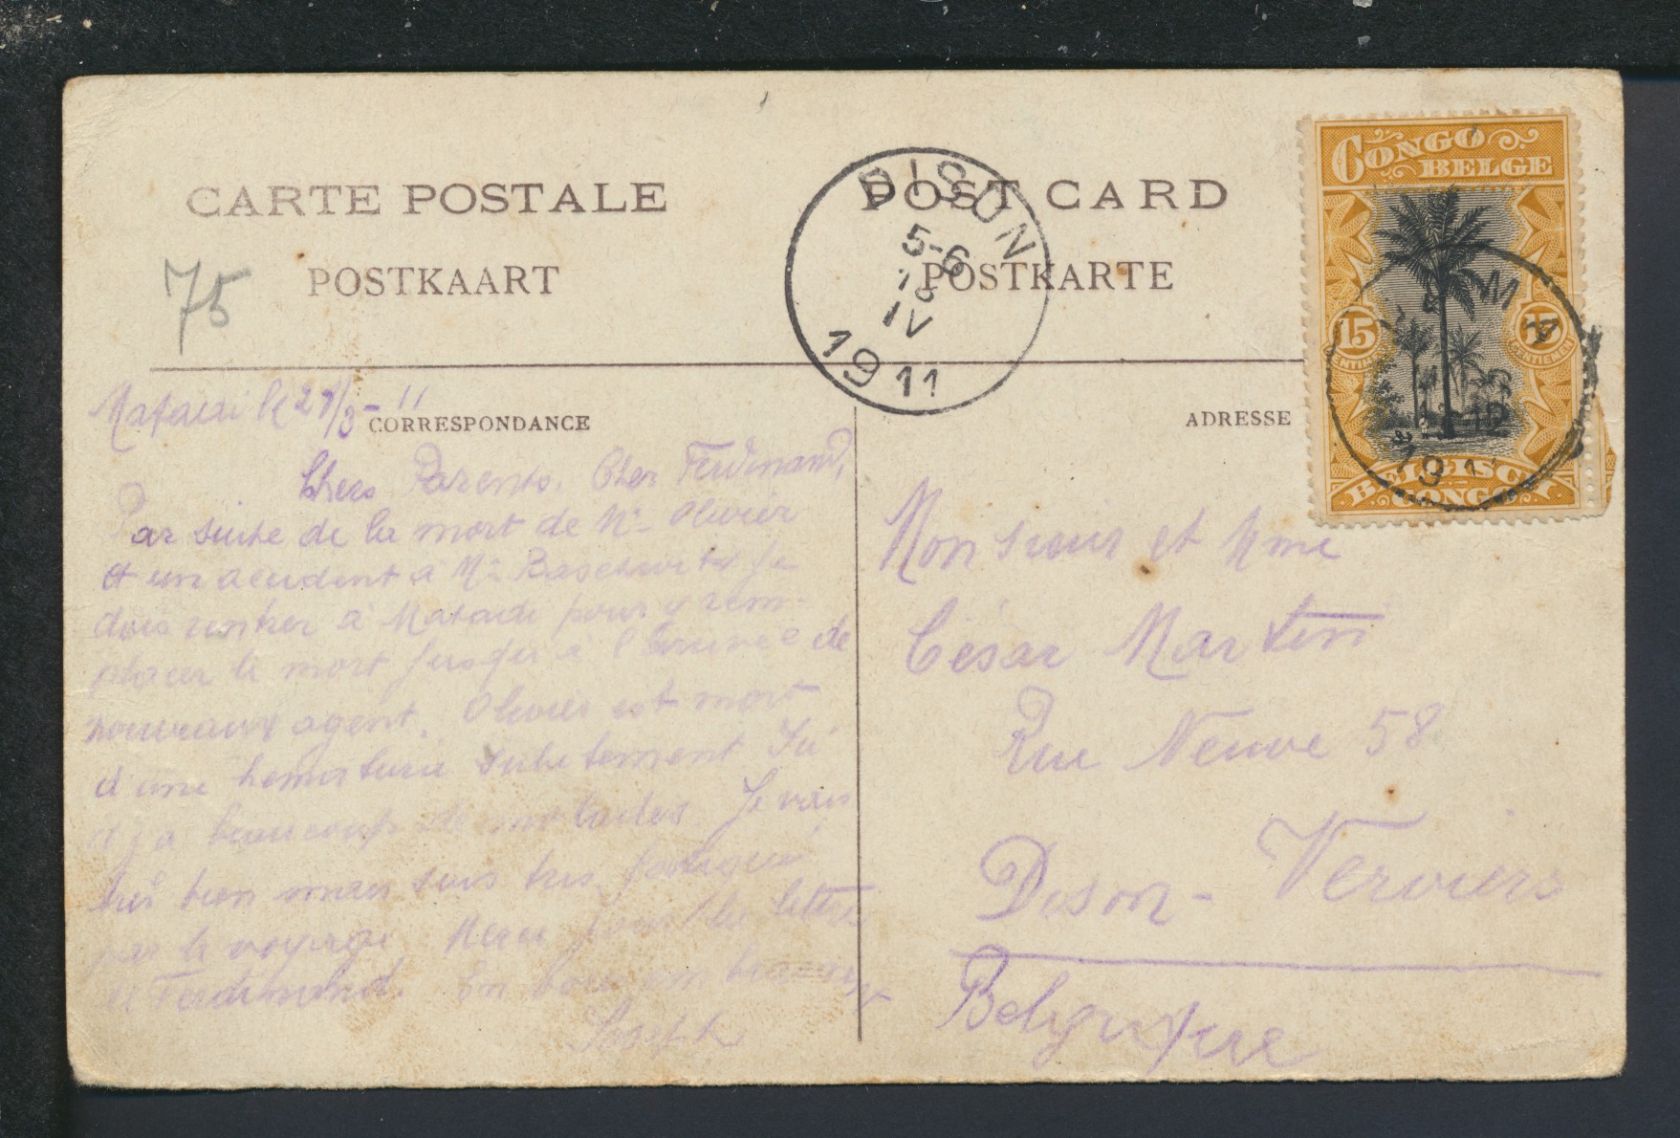 CARTE POSTALE
POST CARD
POSTKAART
POSTKARTE
75
DISON
5-6
18
IV
1911
CONGO
BELGE
15
15
BELGISCH
CONGO
CORRESPONDANCE
ADRESSE
Matadi le 27/3-11
Chers Parents. Cher Ferdinand,
Par suite de la mort de Mr Olivier
et un accident à Mr je
dois rentrer à Matadi pour y rem-
placer le mort jusqu'à l' de
nouveaux agent. Olivier est mort
d'une subitement Ici
il y a beaucoup de malades. Je vais
très bien mais suis très fatigué
par le voyage Merci pour les lettres
de Ferdinand. En vous embrassant
Joseph
Monsieur et Mme
César Martin
Rue Neuve 58
Dison - Verviers
Belgique